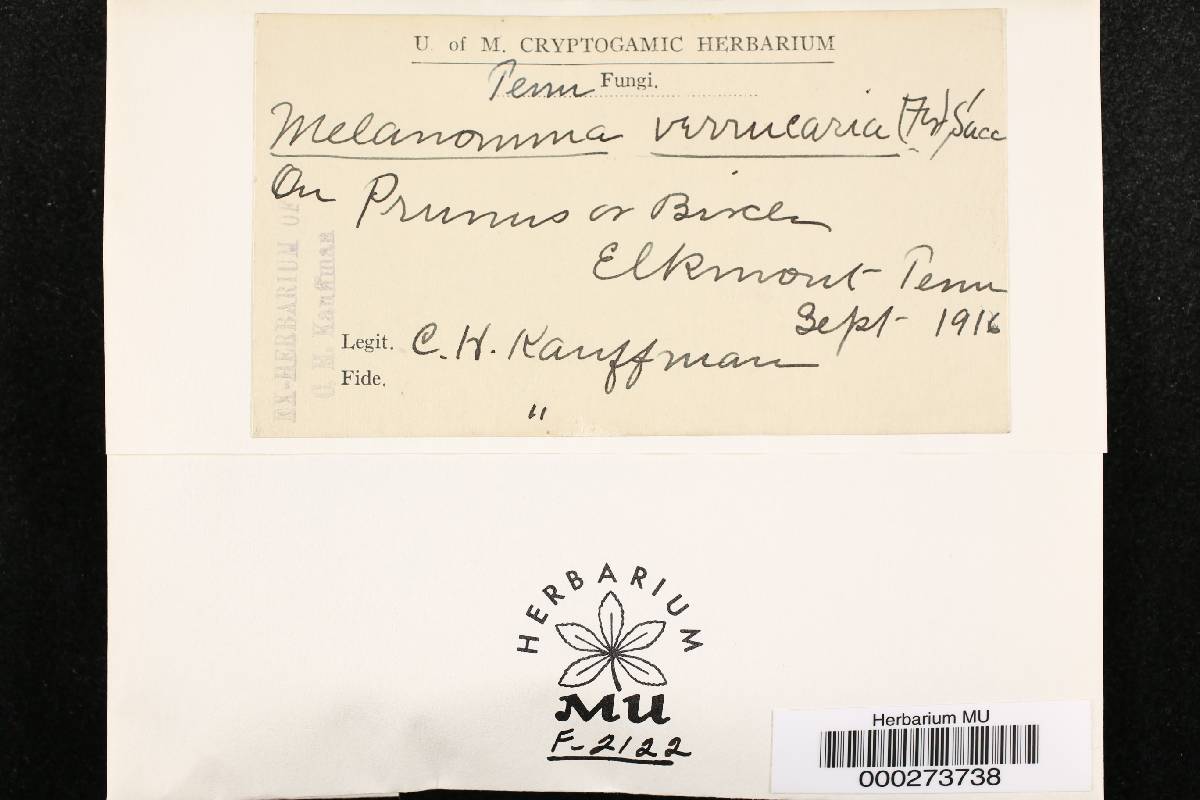 U. of M. CRYPTOGAMIC HERBARIUM
Tenn Fungi.
Melanomma verrucaria (Fr) Sacc
On Prunus or Birch
Elkmont Tenn
Sept - 1916
Legit. C. H. Kauffman
Fide. "
EX-HERBARIUM OF
C. H. Kauffman
HERBARIUM
MU
F-2122
Herbarium MU
000273738